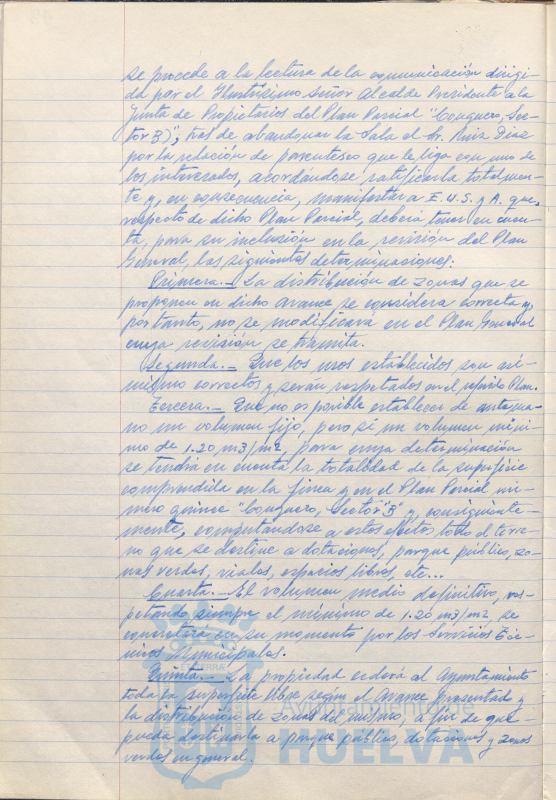 se procede a la lectura de la comunicación dirigi-
da por el Ilustrísimo Señor Alcalde Presidente a la
Junta de Propietarios del Plan Parcial "Conquero, Sec-
tor B)", tras de abandonar la Sala el Sr. Ruiz Diaz
por la relación de parentesco que le liga con uno de
los interesados, acordándose ratificarla totalmen-
te y, en consecuencia, manifestar a E.U.S. y A. que,
respecto de dicho Plan Parcial, deberá tener en cuen-
ta, para su inclusión en la revisión del Plan
General, las siguientes determinaciones:
Primera.- La distribución de zonas que se
proponen en dicho avance se considera correcta y,
por tanto, no se modificará en el Plan General
cuya revisión se tramita.
Segunda.- Que los usos establecidos son asi-
mismo correctos y serán respetados en el referido Plan.
Tercera.- Que no es posible establecer de antema-
no un volumen fijo, pero sí un volumen míni-
mo de 1.20 m3/m2, para cuya determinación
se tendrá en cuenta la totalidad de la superficie
comprendida en la finca y en el Plan Parcial nú-
mero quince "Conquero, Sector B" y, consiguiente-
mente, computándose a estos efectos todo el terre-
no que se destine a dotaciones, parque público, zo-
nas verdes, viales, espacios libres, etc...
Cuarta.- El volumen medio definitivo, res-
petando siempre el mínimo de 1.20 m3/m2, se
concretará en su momento por los Servicios Téc-
nicos Municipales.
Quinta.- La propiedad cederá al Ayuntamiento
toda la superficie libre según el Avance presentado y
la distribución de zonas del mismo, a fin de que
pueda destinarla a parque público, dotaciones y zonas
verdes en general.
Ayuntamiento de
HUELVA